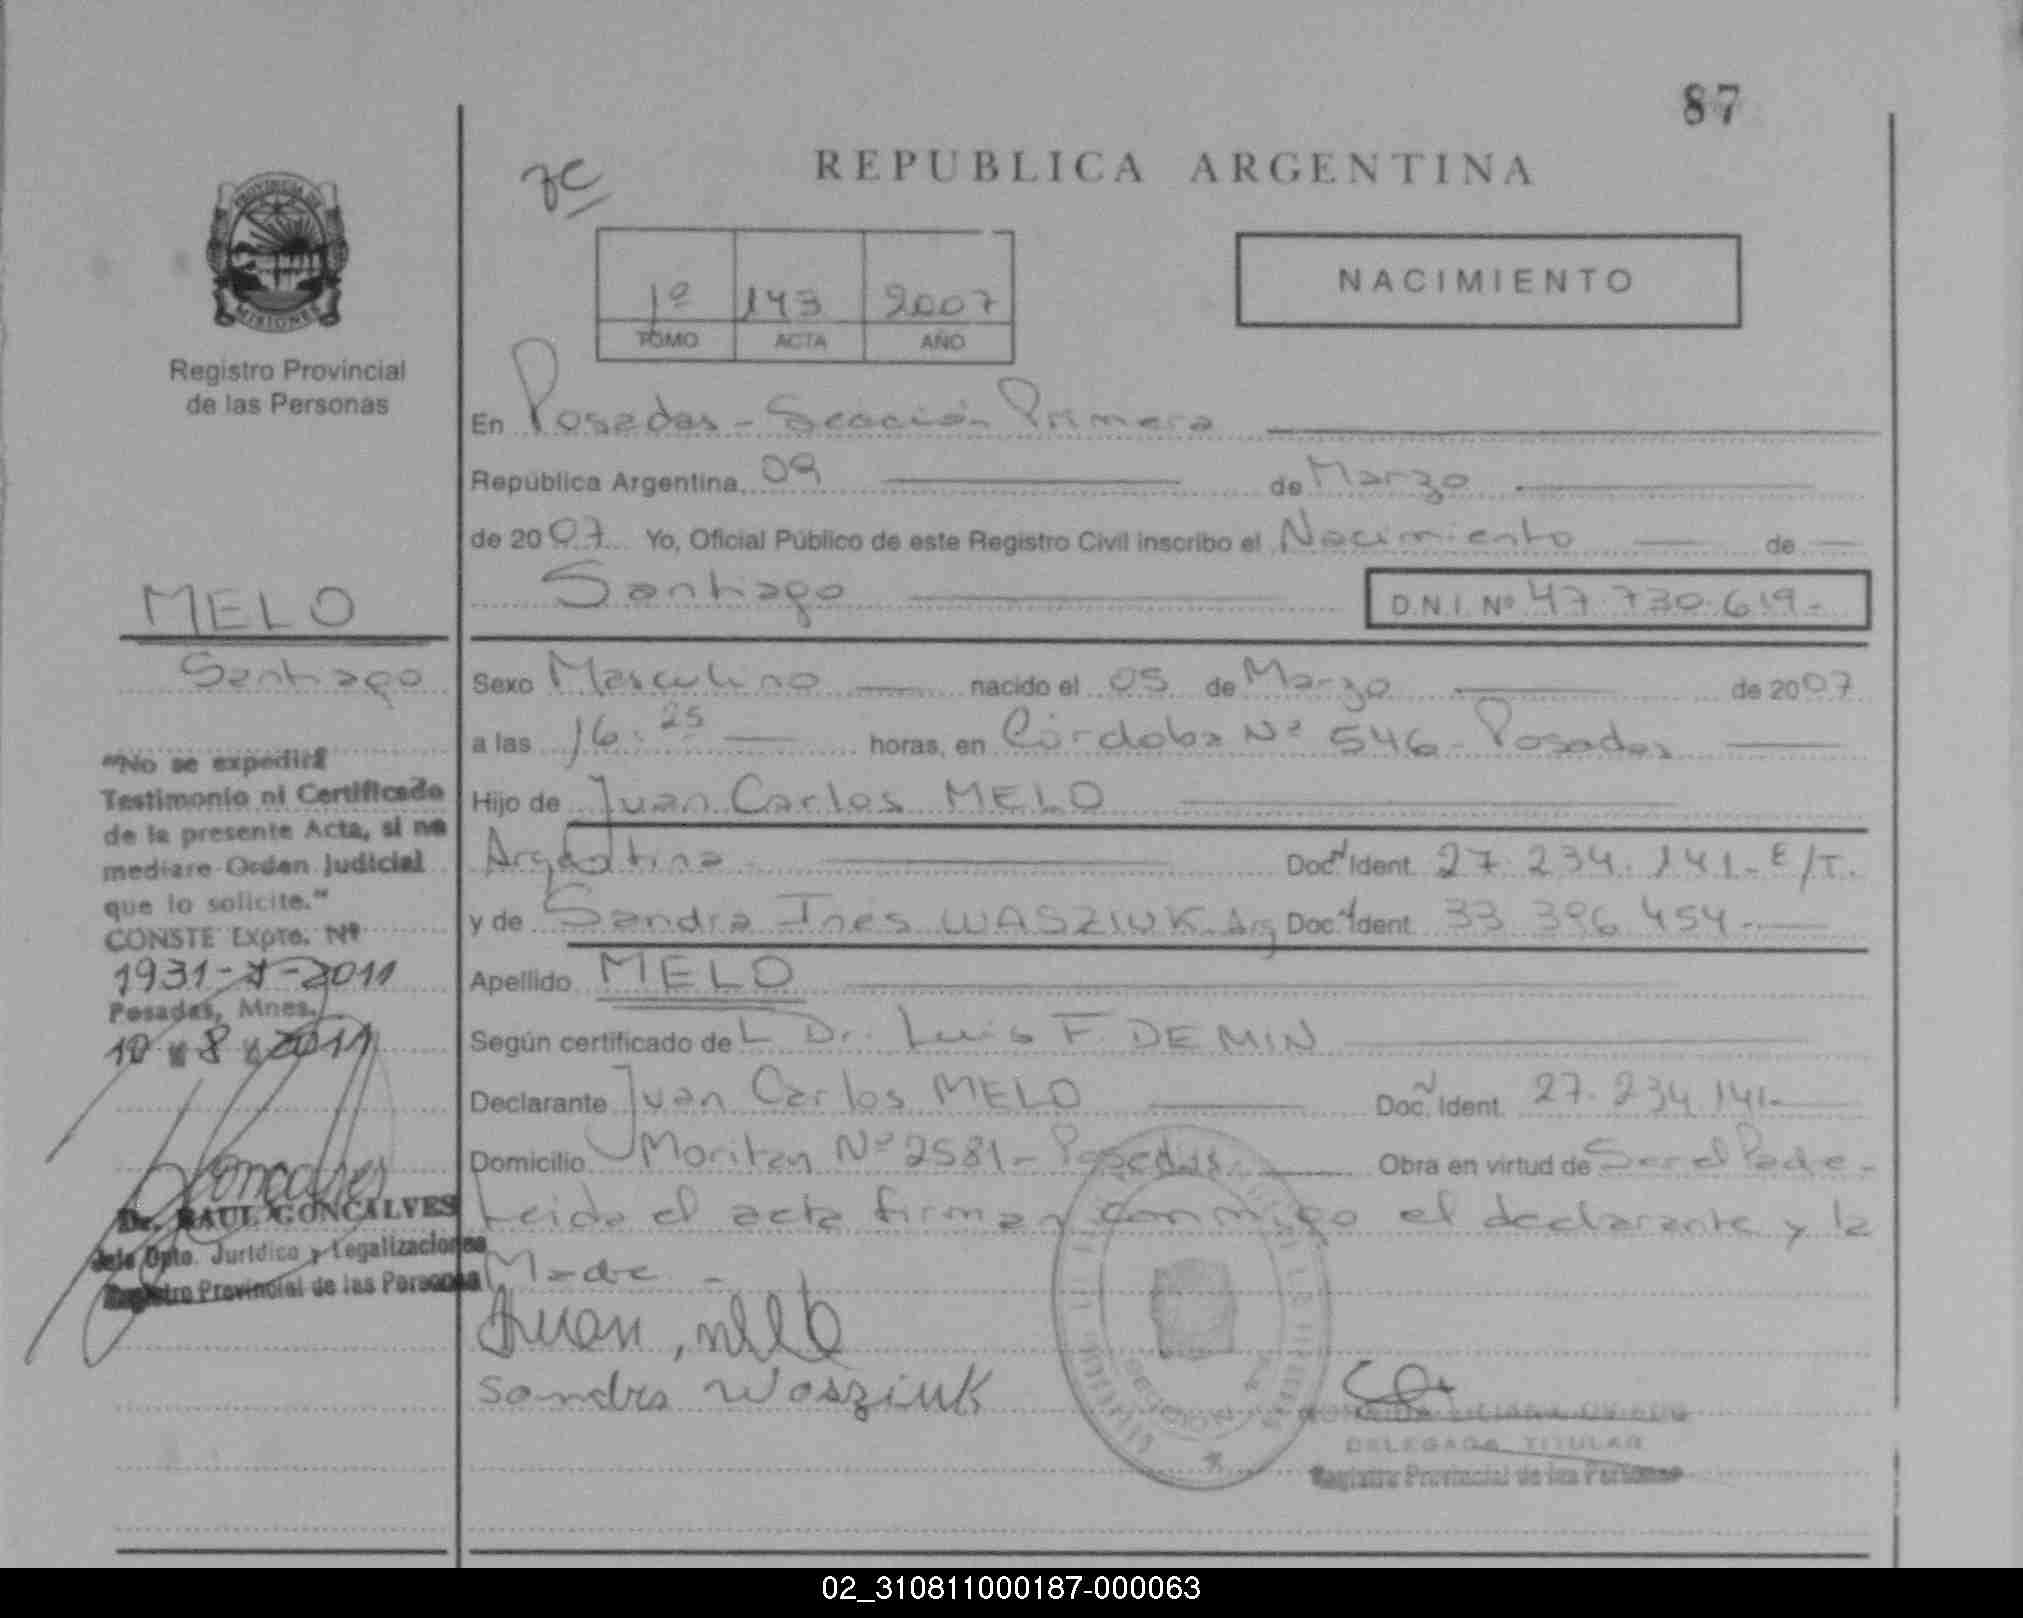 87
REPUBLICA ARGENTINA
PROVINCIA DE
MISIONES
Registro Provincial
de las Personas
1º 143 2007
TOMO ACTA AÑO
NACIMIENTO
En Posadas - Sección Primera
República Argentina, 09 de Marzo
de 2007 Yo, Oficial Público de este Registro Civil inscribo el Nacimiento de
Santiago D.N.I. Nº 47.730.619-
MELO
Santiago
"No se expedirá
Testimonio ni Certificado
de la presente Acta, si no
mediare Orden Judicial
que lo solicite."
CONSTE Expte. Nº
1931-I-2011
Posadas, Mnes.
10 8 2011
Goncalves
Dr. RAUL GONCALVES
Jefe Dpto. Jurídico y Legalizaciones
Registro Provincial de las Personas
Sexo Masculino nacido el 05 de Marzo de 2007
a las 16:25 horas, en Córdoba Nº 546 - Posadas
Hijo de Juan Carlos MELO
Argentina Doc. N Ident. 27.234.141- E/T.
y de Sandra Inés WASZIUK. Arg Doc. N Ident. 33.396.454-
Apellido MELO
Según certificado de L Dr. Luis F. DEMIN
Declarante Juan Carlos MELO Doc. N Ident. 27.234.141-
Domicilio Moritan Nº 2581 - Posadas Obra en virtud de Ser el Padre-
Leida el acta firman conmigo el declarante y la
Madre. -
Juan, melo
Sandra Wasziuk
DELEGADA TITULAR
Registro Provincial de las Personas
02_310811000187-000063